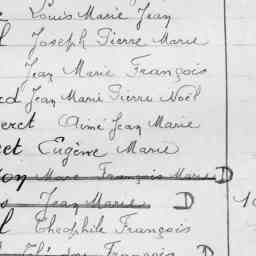 Louis Marie Jean
Joseph Pierre Marie
Jean Marie François
Jean Marie Pierre Noël
Aimé Jean Marie
Eugène Marie
Marc François Marie D
Jean Marie D
Théophile François
François D